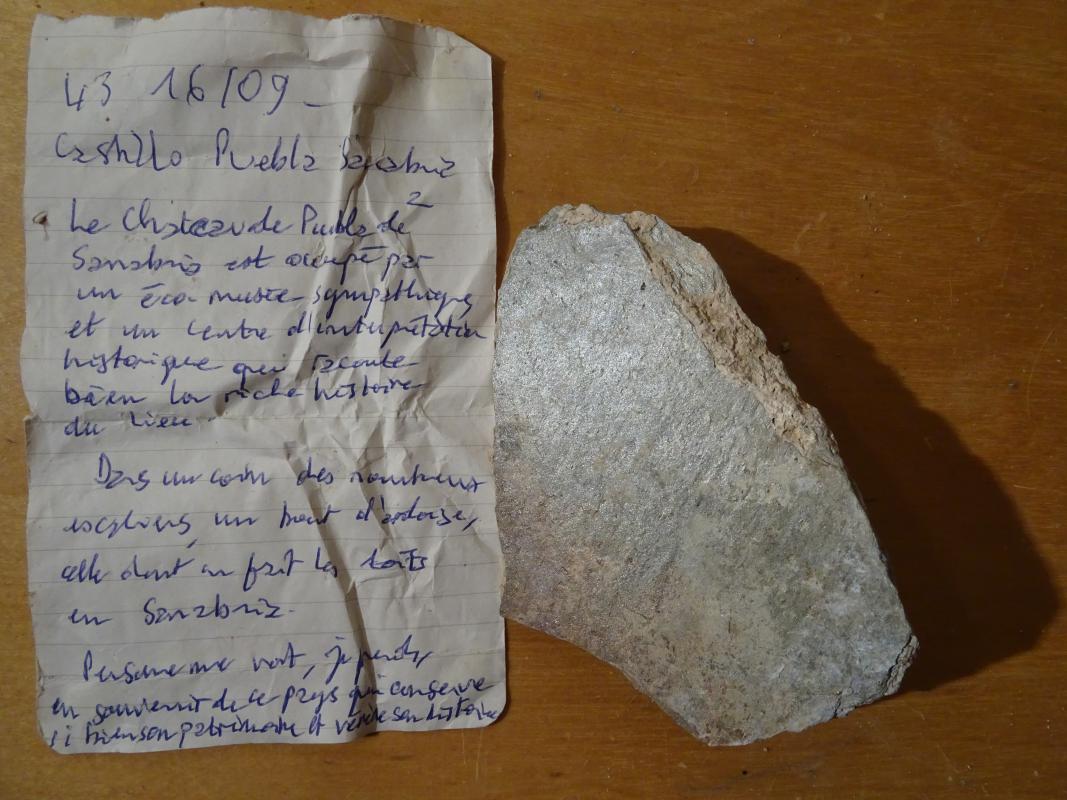 43 16/09 -
Castillo Puebla Sanabria
2
Le Chateau de Puebla de
Sanabria est occupé par
un éco-musée sympathique
et un centre d'interprétation
historique qui raconte
bien la riche histoire
du lieu.
Dans un coin des nombreux
escaliers, un bout d'ardoise,
celle dont on fait les toits
en Sanabria.
Personne me voit, je prends,
en souvenir de ce pays qui conserve
si bien son patrimoine et son histoire